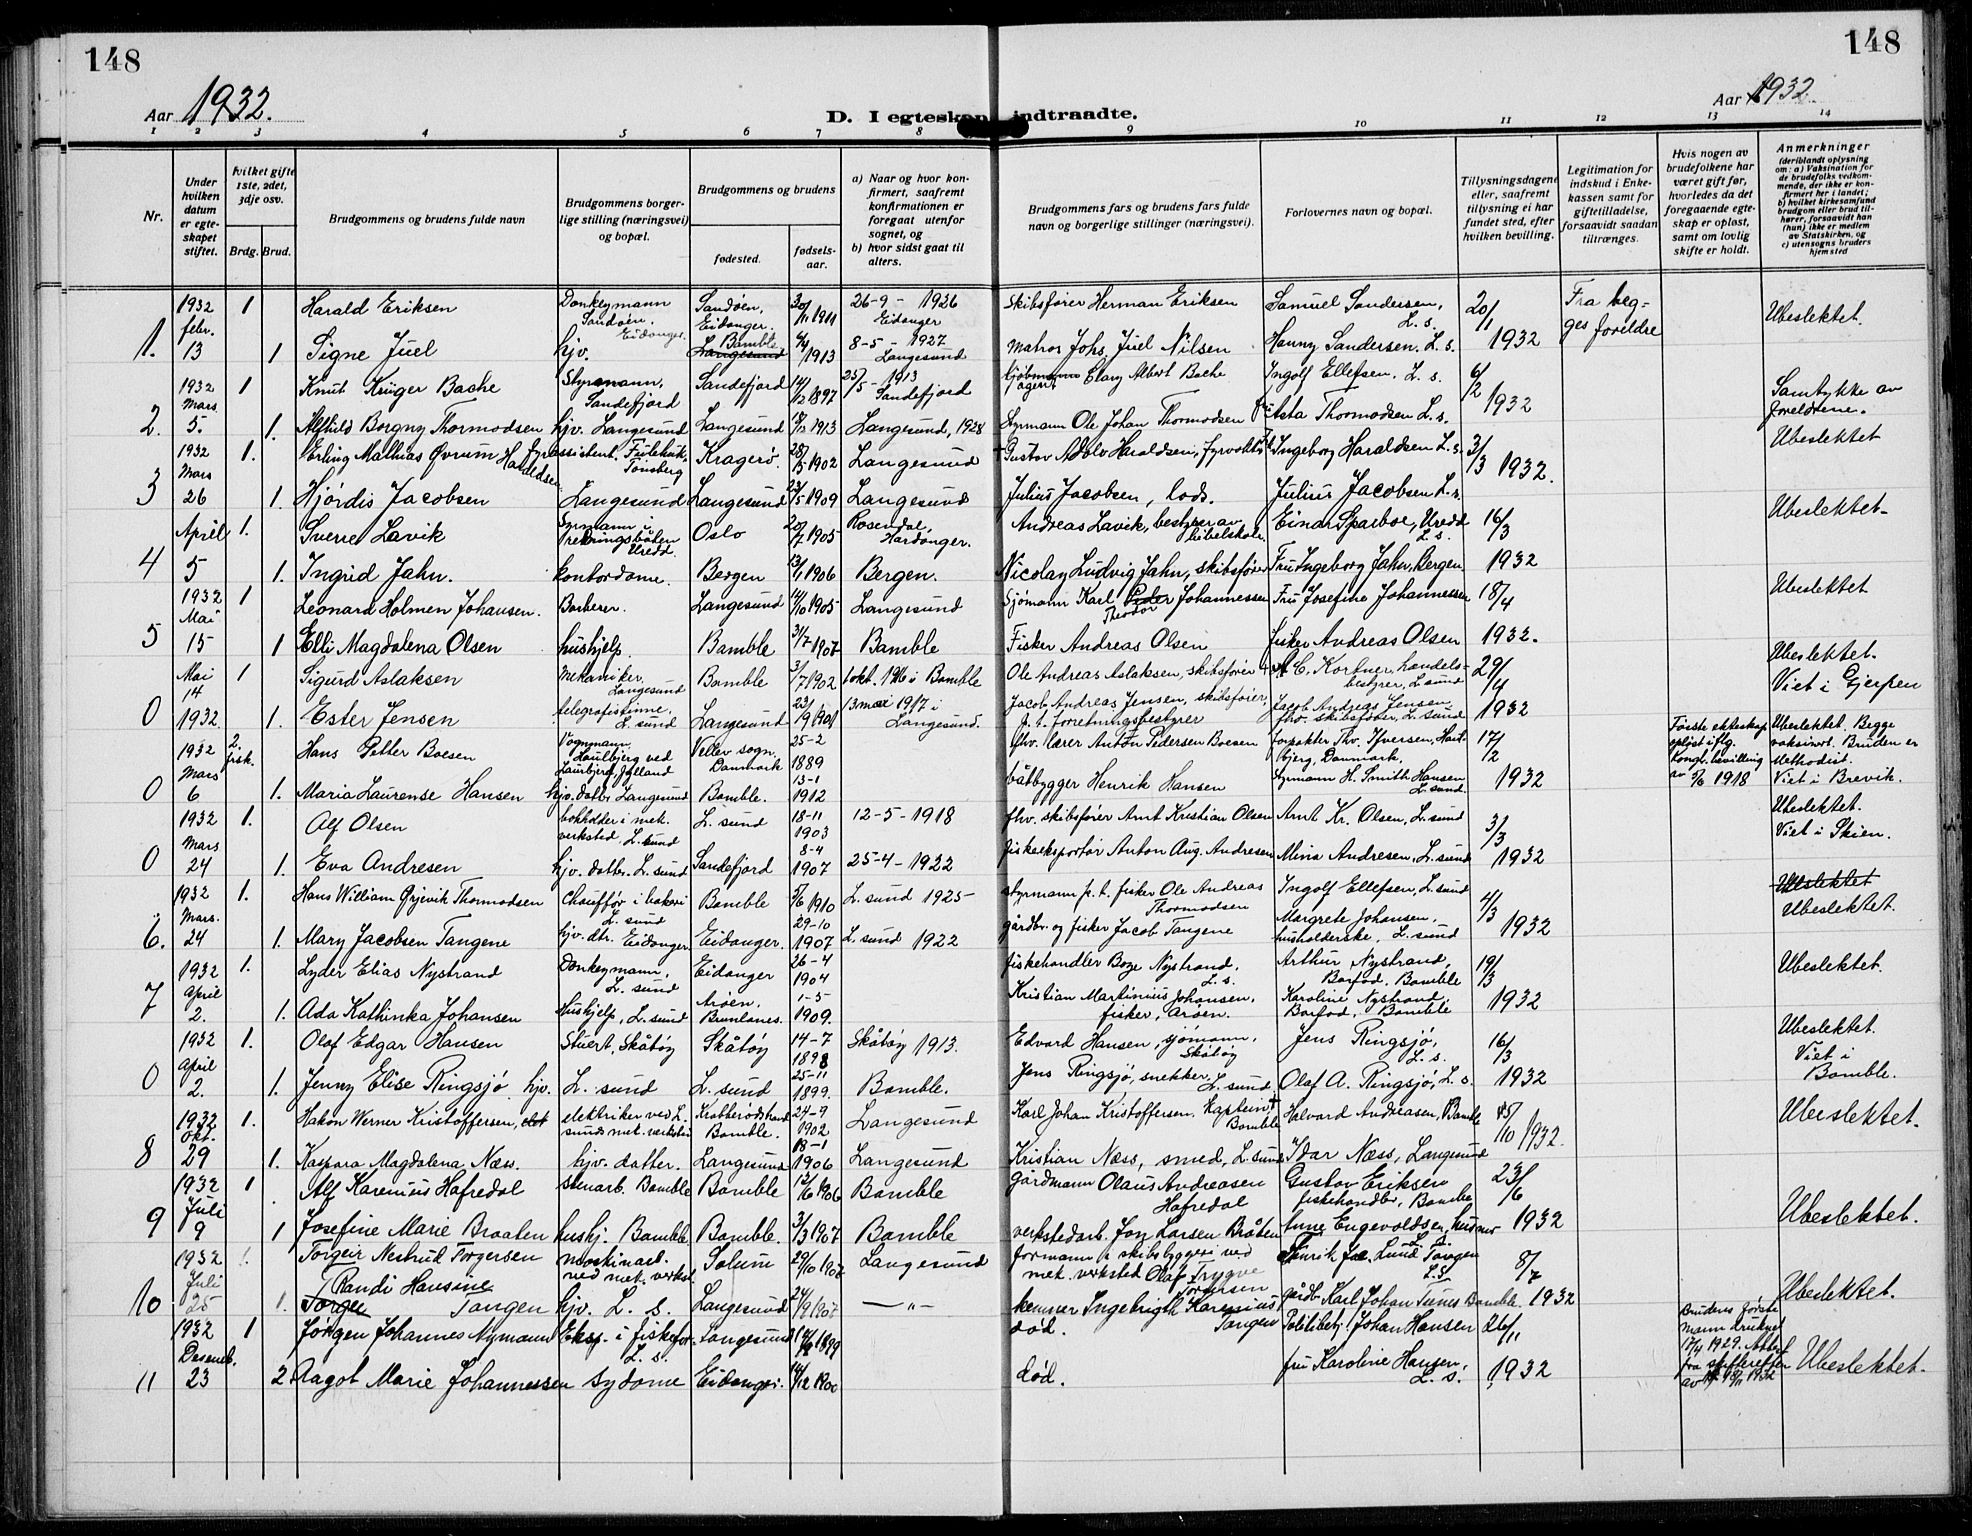 148
148
Aar 1932.
D. I egteskap indtraadte.
Aar 1932.
1 2 3 4 5 6 7 8 9 10 11 12 13 14
Nr.
Under hvilken datum er egteskapet stiftet.
hvilket gifte 1ste, 2det, 3dje osv.
Brdg. Brud.
Brudgommens og brudens fulde navn
Brudgommens borgerlige stilling (næringsvei) og bopæl.
Brudgommens og brudens
fødested.
fødselsaar.
a) Naar og hvor konfirmert, saafremt konfirmationen er foregaat utenfor sognet, og
b) hvor sidst gaat til alters.
Brudgommens fars og brudens fars fulde navn og borgerlige stillinger (næringsvei).
Forlovernes navn og bopæl.
Tillysningsdagene eller, saafremt tillysning ei har fundet sted, efter hvilken bevilling.
Legitimation for indskud i Enkekassen samt for giftetilladelse, forsaavidt saadan tiltrænges.
Hvis nogen av brudefolkene har været gift før, hvorledes da det foregaaende egteskap er opløst, samt om lovlig skifte er holdt.
Anmerkninger (deriblandt oplysning om: a) Vaksination for de brudefolks vedkommende, der ikke er konfirmert her i landet; b) hvilket kirkesamfund brudgom eller brud tilhører, forsaavidt han (hun) ikke er medlem av Statskirken, og c) utensogns bruders hjemsted
1. 1932 febr. 13 1 Harald Eriksen Donkeymann Sandøen, Eidanger. Sandøen, Eidanger. 30/11 1911 26-9-1926 Eidanger Skibsfører Herman Eriksen Samuel Sandersen, L.s. 20/1 1932 Fra begges foreldre Ubeslektet.
1 Signe Juel hjv. Langesund Bamble 1913 8-5-1927 Langesund Matros Johs. Juel Nilsen Hanny Sandersen. L.s.
2. 1932 Mars 5. 1 Knut Krüger Bache Styrmann, Sandefjord Sandefjord 14/12 1897 25/5-1913 Sandefjord Albert Bache Ingolf Ellefsen, L.s. 6/2 1932 Samtykke av foreldrene. Ubeslektet
1. Alfhild Borgny Thormodsen hjv. Langesund Langesund 18/12 1913 Langesund, 1928 Styrmann Ole Johan Thormodsen Fru Asta Thormodsen L.s.
3 1932 Mars 26 1. Erling Mathias Øvrum Haraldsen Fyrassistent, Fulehuk, Tønsberg Kragerø. 28/5 1902 Langesund Gustav Adolv Haraldsen, fyrvokter Ingeborg Haraldsen L.s. 3/3 1932.
1. Hjørdis Jacobsen Langesund Langesund 23/5 1909 Langesund Julius Jacobsen, lods. Julius Jacobsen L.s. Ubeslektet
4 April 5 1. Sverre Lavik Styrmann i Prekningsbåten Uredd. Oslo 20/7 1905 Rosendal, Hardanger. Andreas Lavik, bestyrer av bibelskole Einar Sparboe, Uredd L.s. 16/3 1932
1. Ingrid Jahn. kontordame. Bergen 13/1 1906 Bergen. Nicolay Ludvig Jahn, skibsfører Fru Ingeborg Jahn, Bergen Ubeslektet
5 1932 Mai 15 1 Leonard Holmen Johansen. Barberer. Langesund 14/10 1905 Langesund Sjømann Karl Peder Theodor Johannessen Fru Josefine Johannessen 18/4 1932.
1 Elli Magdalena Olsen hushjelp. Bamble 31/7 1907 Bamble Fisker Andreas Olsen fisker Andreas Olsen Ubeslektet.
0 Mai 14 1932 1 Sigurd Aslaksen Mekaniker, Langesund Bamble 3/7 1902 1 okt. 1916 i Bamble Ole Andreas Aslaksen, skibsfører C. Kortner, handelsbestyrer, L.sund 29/4 1932 Viet i Gjerpen
1. Ester Jensen telegrafistinne, L.sund Langesund 23/9 1901 13 mai 1917 i Langesund. Jacob Andreas Jensen, skibsfører, p.t. forretningsbestyrer Jacob Andreas Jensen fhv. skibsfører, L.sund
0 1932 Mars 6 2. frask. Hans Petter Boesen Vognmann, Laulbjerg ved Laurbjerg, Jylland Vellev sogn, Danmark 25-2 1889 fhv. lærer Anton Pedersen Boesen forpakter Thv. Iversen, Danmark. 17/2 1932 Første ekteskap opløst iflg. Kongl. bevilling av 3/6 1918 Ubeslektet. Begge vaksinert. Bruden er Methodist. Viet i Brevik.
1. Maria Laurense Hansen hjv. datter Langesund Bamble. 13-1 1912 båtbygger Henrik Hansen styrmann H. Smith Hansen L.sund
0 1932 Mars 24 1. Alf Olsen bokholder i mek. verksted L.sund L.sund 18-11 1903 12-5-1918 fhv. skibsfører Arnt Kristian Olsen Arnt Kr. Olsen, L.sund 3/3 1932 Ubeslektet. Viet i Skien.
1. Eva Andresen hjv. datter. L.sund Sandefjord 8-4 1907 25-4-1922 fiskeeksportør Anton Aug. Andresen Mina Andresen, L.sund
6. 1932 Mars. 24 1. Hans William Ørjevik Thormodsen Chauffør i bakeri L.sund Bamble 5/6 1910 L.sund 1925 styrmann p.t. fisker Ole Andreas Thormodsen Ingolf Ellefsen, L.sund 4/3 1932 Ubeslektet Ubeslektet.
1. Mary Jacobsen Tangene hjv. dtr. Eidanger Eidanger. 29-10 1907 L.sund 1922 gårdbr. og fisker Jacob Tangene Margrete Johansen, husholderske, L.sund
7 1932 April 2. 1. Lyder Elias Nystrand Donkeymann, L.sund Eidanger 26-4 1904 fiskehandler Boye Nystrand, L.s. Arthur Nystrand, Barfod, Bamble 19/3 1932 Ubeslektet.
1. Ada Kathinka Johansen Hushjelp, L.sund Arøen, Brunlanes. 1-5 1909. Kristian Martinius Johansen, fisker, Arøen. Karoline Nystrand, Barfod, Bamble
0 1932 April 2. 1. Olaf Edgar Hansen Stuert, Skåtøy Skåtøy 14-7 1898 Skåtøy 1913. Edvard Hansen, sjømann, Skåtøy Jens Ringsjø, L.s. 16/3 1932 Ubeslektet. Viet i Bamble.
1. Jenny Elise Ringsjø hjv. L.sund L.sund 25-11 1899. Bamble. Jens Ringsjø, snekker, L.sund Olaf A. Ringsjø, L.s.
8 1932 Okt. 29 1. Hakon Werner Kristoffersen, elektriker ved L.sunds mek. verksted Bamble. 24-9 1902 Langesund Karl Johan Kristoffersen. Kaptein, Bamble Halvard Andreasen, Bamble 15/10 1932. Ubeslektet.
1. Kaspara Magdalena Næss. hjv. datter. Langesund 13-1 1906 Langesund Kristian Næss, smed, L.sund Idar Næss, Langesund
9 1932 Juli 9 1 Alf Karenius Hafredal stenarb. Bamble Bamble 12/6 1906 Bamble Gårdmann Olaus Andreasen Hafredal Gustav Eriksen fiskehandler, Bamble 23/6 1932 Ubeslektet.
1 Josefine Marie Braaten hushj. Bamble Bamble. 3/3 1907 Bamble verkstedarb. Jon Larsen Bråten Anne Engevoldsen, L.s.
10 1932 Juli 25 1. Torgeir Nestrud Torgersen maskinarb. ved mek. verksted Solum 29/10 1902 Langesund formann i skibsbyggeri ved mek. verksted Olaf Trygve Torgersen Henrik Lund Tangen L.S. 8/7 1932
1. Randi Hansine Torger Tangen hjv. L.s. Langesund 24/9 1907 —"— kemner Ingebrigth Karenius Tangen gårdbr. Karl Johan Tunes Bamble. Ubeslektet.
11 1932 Desemb. 23 1 Jørgen Johannes Nymann Eksp. i fiskefor. L.s. Langesund 1899 død. Politibetj. Johan Hansen 26/11 1932 Brudens første mann druknet 17/4 1929. Attest fra skifteretten av 18/11 1932 Ubeslektet.
2. Ragot Marie Johannessen sydame Eidanger. 14/12 1900 død. fru Karoline Hansen, L.s.